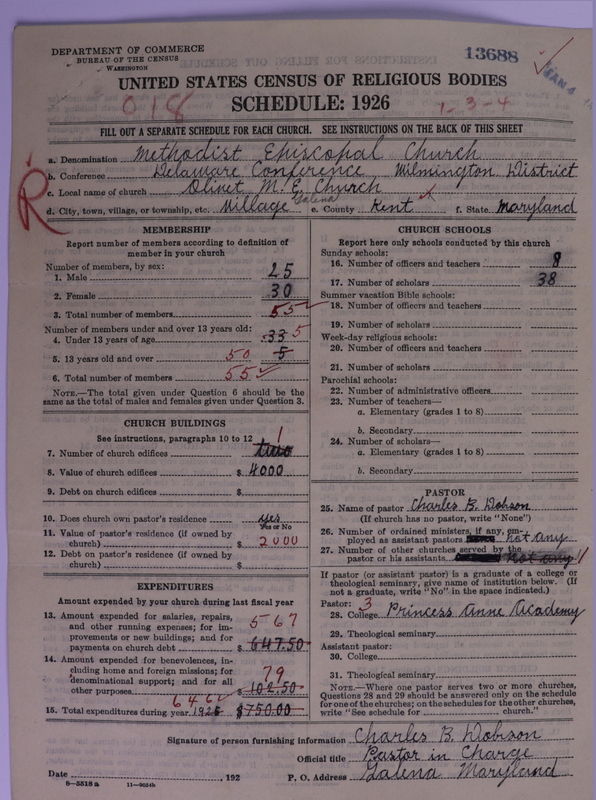 DEPARTMENT OF COMMERCE
BUREAU OF THE CENSUS
WASHINGTON
13688
JAN 4
UNITED STATES CENSUS OF RELIGIOUS BODIES
SCHEDULE: 1926
018
1-3-4
FILL OUT A SEPARATE SCHEDULE FOR EACH CHURCH. SEE INSTRUCTIONS ON THE BACK OF THIS SHEET
R
a. Denomination Methodist Episcopal Church
b. Conference Delaware Conference Wilmington District
c. Local name of church Olivet M. E. Church
d. City, town, village, or township, etc. Village Galena e. County Kent f. State Maryland
MEMBERSHIP
Report number of members according to definition of
member in your church
Number of members, by sex:
1. Male 25
2. Female 30
3. Total number of members 55
Number of members under and over 13 years old:
4. Under 13 years of age 33 5
5. 13 years old and over 50 5
6. Total number of members 55
NOTE.—The total given under Question 6 should be
same as the total of males and females given under Question 3.
CHURCH BUILDINGS
See instructions, paragraphs 10 to 12
7. Number of church edifices two 1
8. Value of church edifices $ 4000
9. Debt on church edifices $
10. Does church own pastor's residence yes
Yes or No
11. Value of pastor's residence (if owned by
church) $ 2000
12. Debt on pastor's residence (if owned by
church) $
EXPENDITURES
Amount expended by church during last fiscal year
13. Amount expended for salaries, repairs,
and other running expenses; for im-
provements or new buildings; and for
payments on church debt 567 $ 647.50
14. Amount expended for benevolences, in-
cluding home and foreign missions; for
denominational support; and for all
other purposes 79 $ 102.50
646
15. Total expenditures during year 1926 $ 750.00
CHURCH SCHOOLS
Report here only schools conducted by this church
Sunday schools:
16. Number of officers and teachers 8
17. Number of scholars 38
Summer vacation Bible schools:
18. Number of officers and teachers
19. Number of scholars
Week-day religious schools:
20. Number of officers and teachers
21. Number of scholars
Parochial schools:
22. Number of administrative officers
23. Number of teachers—
a. Elementary (grades 1 to 8)
b. Secondary
24. Number of scholars—
a. Elementary (grades 1 to 8)
b. Secondary
PASTOR
25. Name of pastor Charles B. Dobson
(If church has no pastor, write "None")
26. Number of ordained ministers, if any, em-
ployed as assistant pastors not any
27. Number of other churches served by the
pastor or his assistants not any 1
If pastor (or assistant pastor) is a graduate of a college or
theological seminary, give name of institution below. (If
not a graduate, write "No" in the space indicated.)
Pastor: 3
28. College Princess Anne Academy
29. Theological seminary
Assistant pastor:
30. College
31. Theological seminary
NOTE.—Where one pastor serves two or more churches,
Questions 28 and 29 should be answered only on the schedule
for one of the churches; on the schedules for the other churches,
write "See schedule for church."
Signature of person furnishing information Charles B. Dobson
Official title Pastor in Charge
Date , 192 P. O. Address Galena Maryland
8-5518a 11-9024b